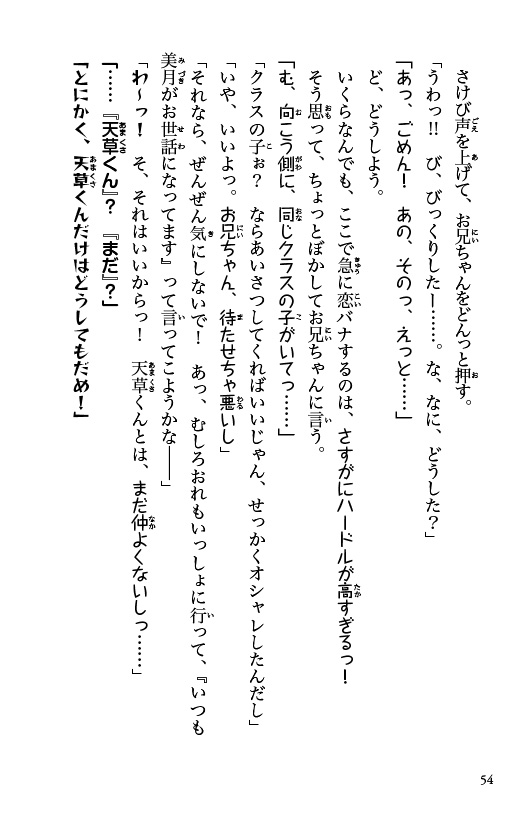 さけび声を上げて、お兄ちゃんをどんっと押す。
「うわっ!! び、びっくりしたー……。な、なに、どうした？」
「あっ、ごめん！ あの、そのっ、えっと……」
ど、どうしよう。
いくらなんでも、ここで急に恋バナするのは、さすがにハードルが高すぎるっ！
そう思って、ちょっとぼかしてお兄ちゃんに言う。
「む、向こう側に、同じクラスの子がいてっ……」
「クラスの子ぉ？ ならあいさつしてくればいいじゃん、せっかくオシャレしたんだし」
「いや、いいよっ。お兄ちゃん、待たせちゃ悪いし」
「それなら、ぜんぜん気にしないで！ あっ、むしろおれもいっしょに行って、『いつも
美月がお世話になってます』って言ってこようかな――」
「わ～っ！ そ、それはいいからっ！ 天草くんとは、まだ仲よくないしっ……」
「……『天草くん』？ 『まだ』？」
「とにかく、天草くんだけはどうしてもだめ！」
54